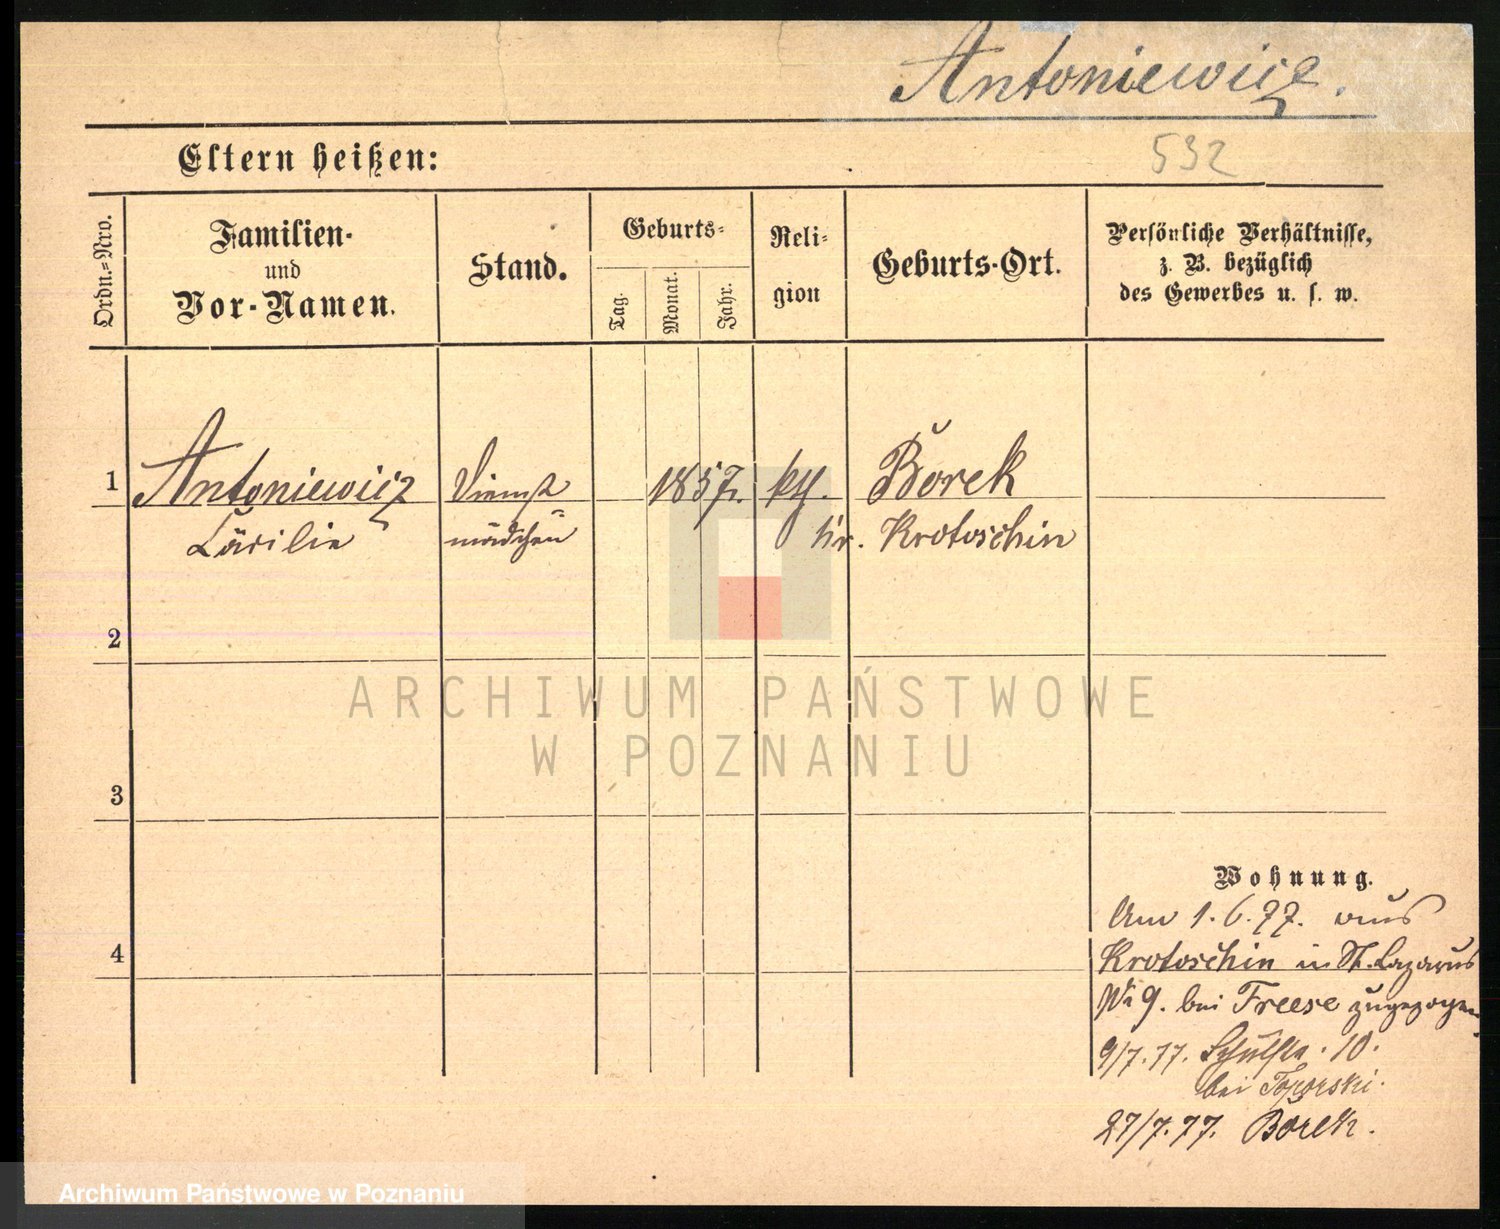 Antoniewicz.
532
Eltern heißen:
Ordn.-Nro.
Familien-
und
Vor-Namen.
Stand.
Geburts-
Tag.
Monat.
Jahr.
Reli-
gion
Geburts-Ort.
Persönliche Verhältnisse,
z. B. bezüglich
des Gewerbes u. s. w.
1 Antoniewicz Dienst 1857. kth. Borek
Cäcilie mädchen Kr. Krotoschin
2
ARCHIWUM PAŃSTWOWE
W POZNANIU
3
Wohnung.
4
Am 1.6.77. aus
Krotoschin in St. Lazarus
No 9. bei Freese zugezogen.
9/7.77. Schulstr. 10.
bei Toporski.
27/7.77. Borek.
Archiwum Państwowe w Poznaniu